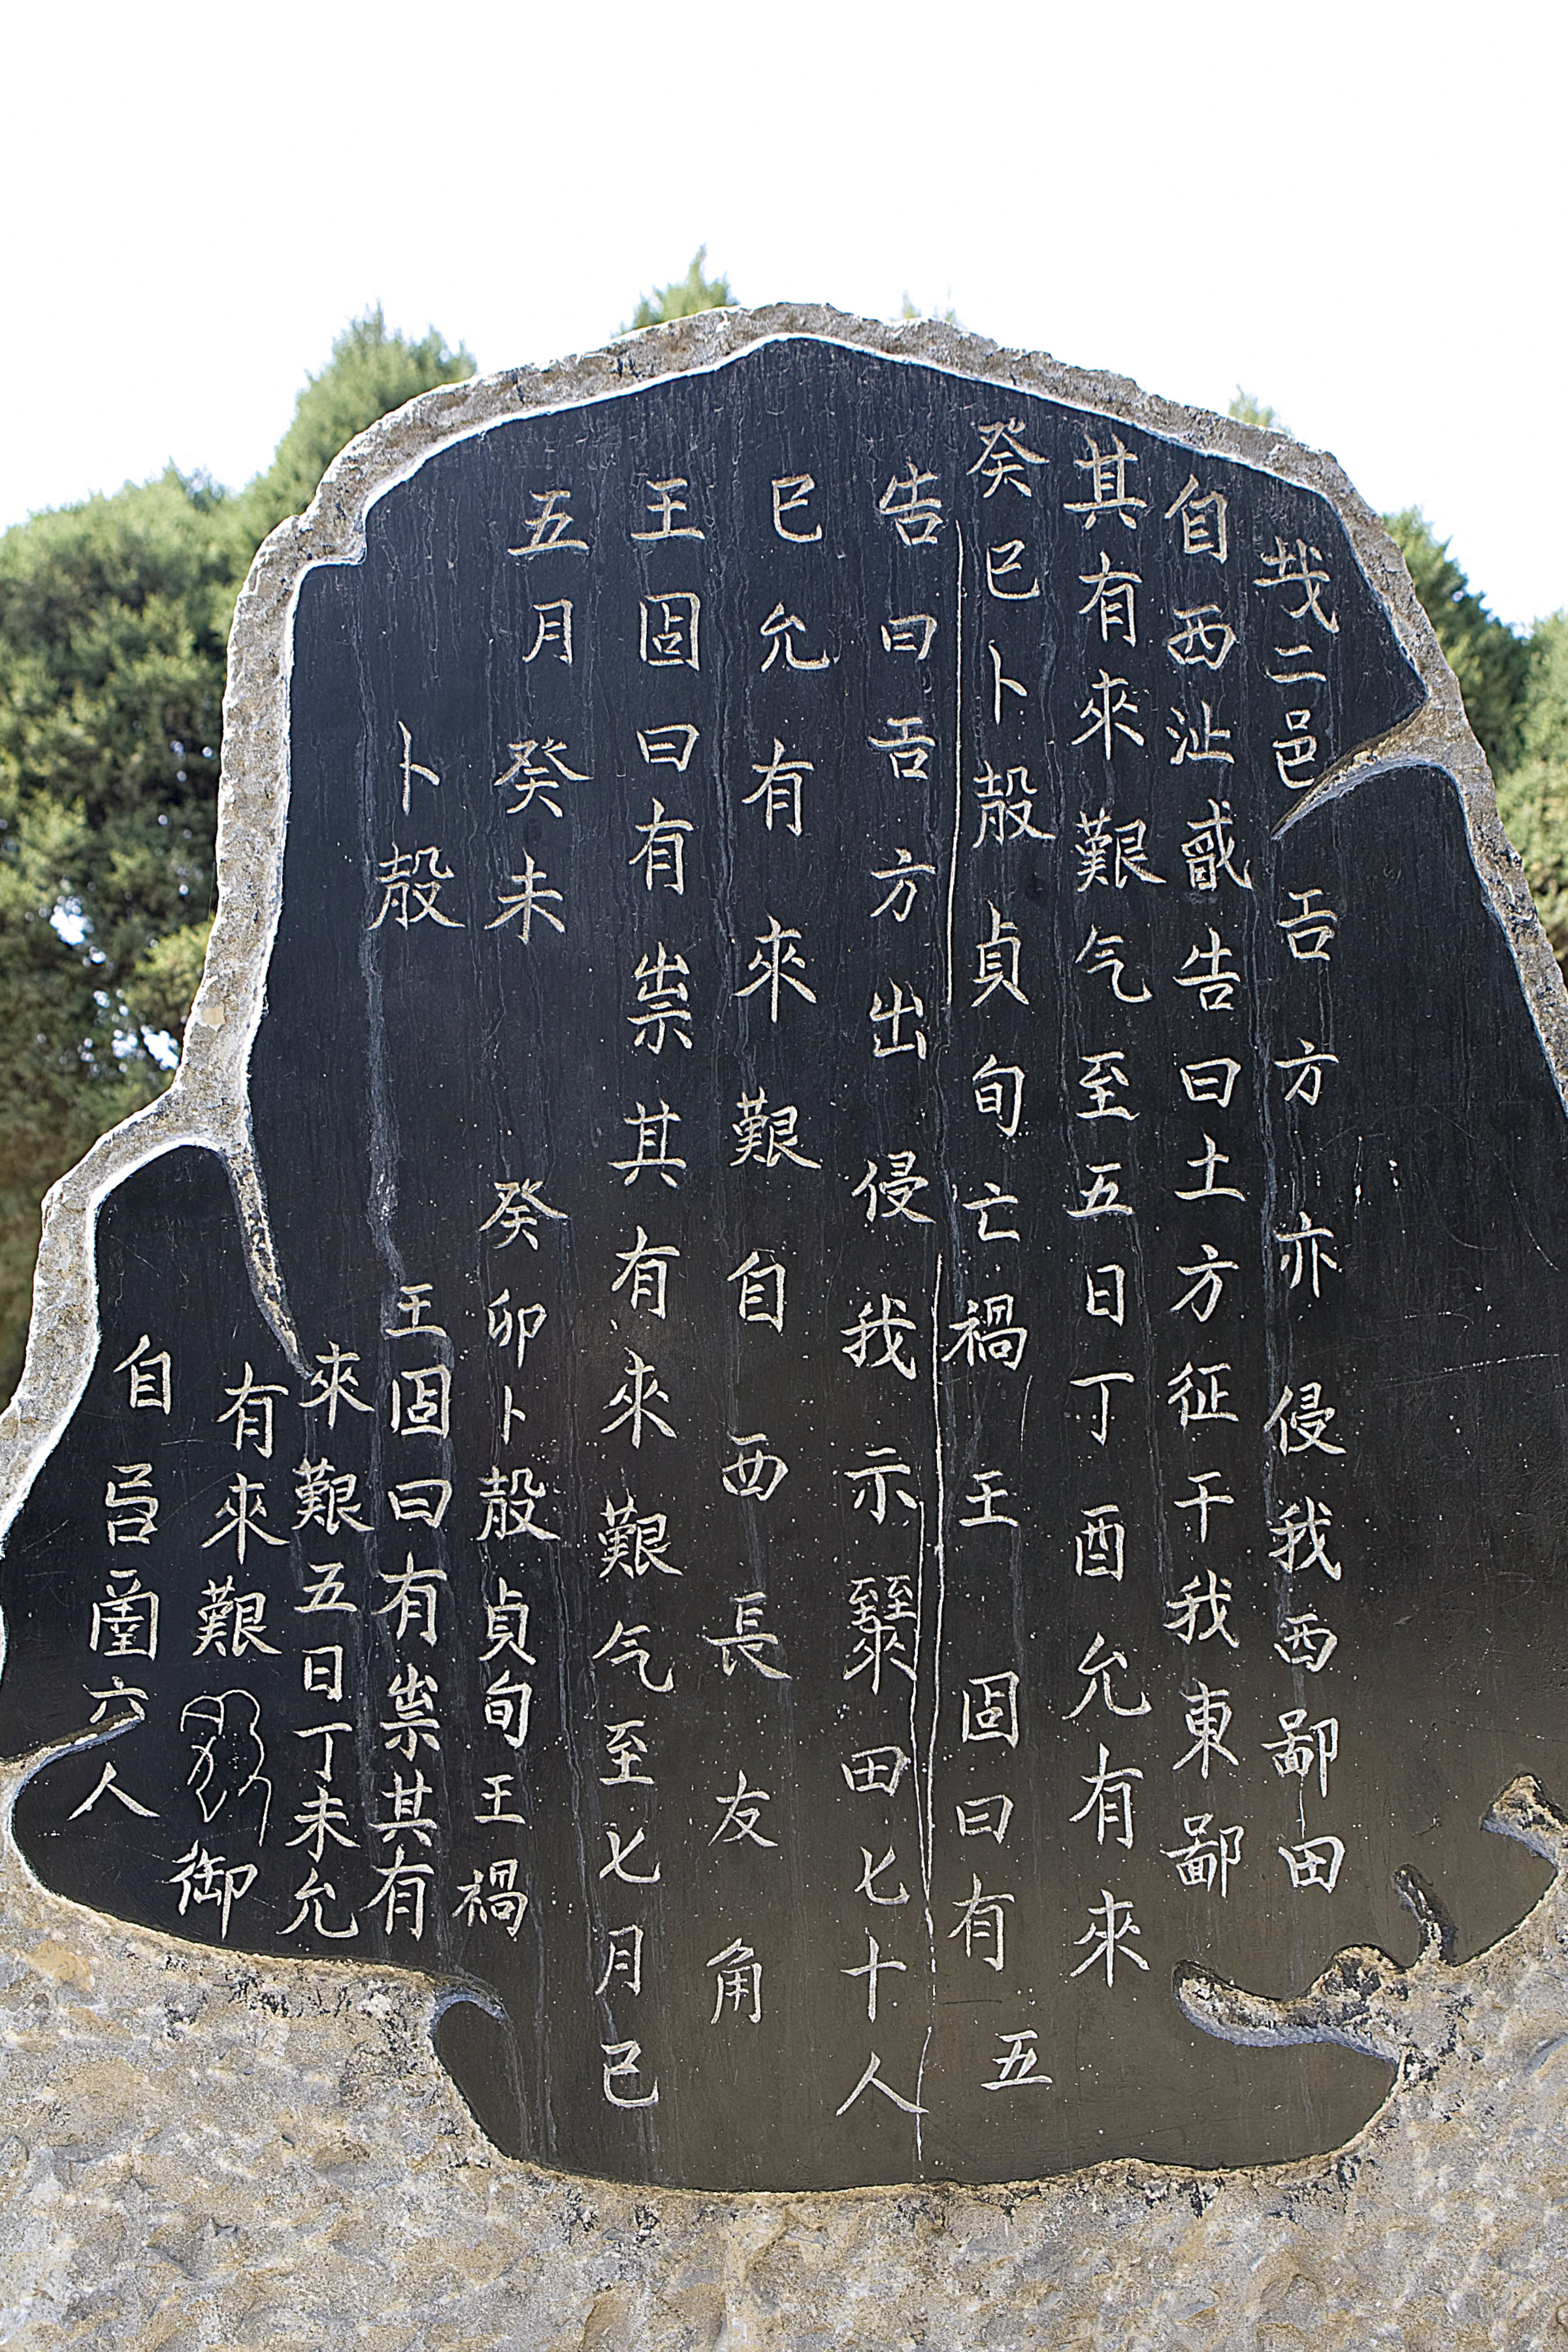 癸巳卜殻貞旬亡禍王固曰有
五
其有來艱气至五日丁酉允有來
自西沚告曰土方征干我東鄙
二邑𢀛方亦侵我西鄙田
王固曰有祟其有來艱气至七月己
巳允有來艱自西長友角
告曰𢀛方出侵我示田七十人
五月
癸未
卜殻
癸卯卜殻貞旬王禍
王固曰有祟其有
來艱五日丁未允
有來艱御
自六人